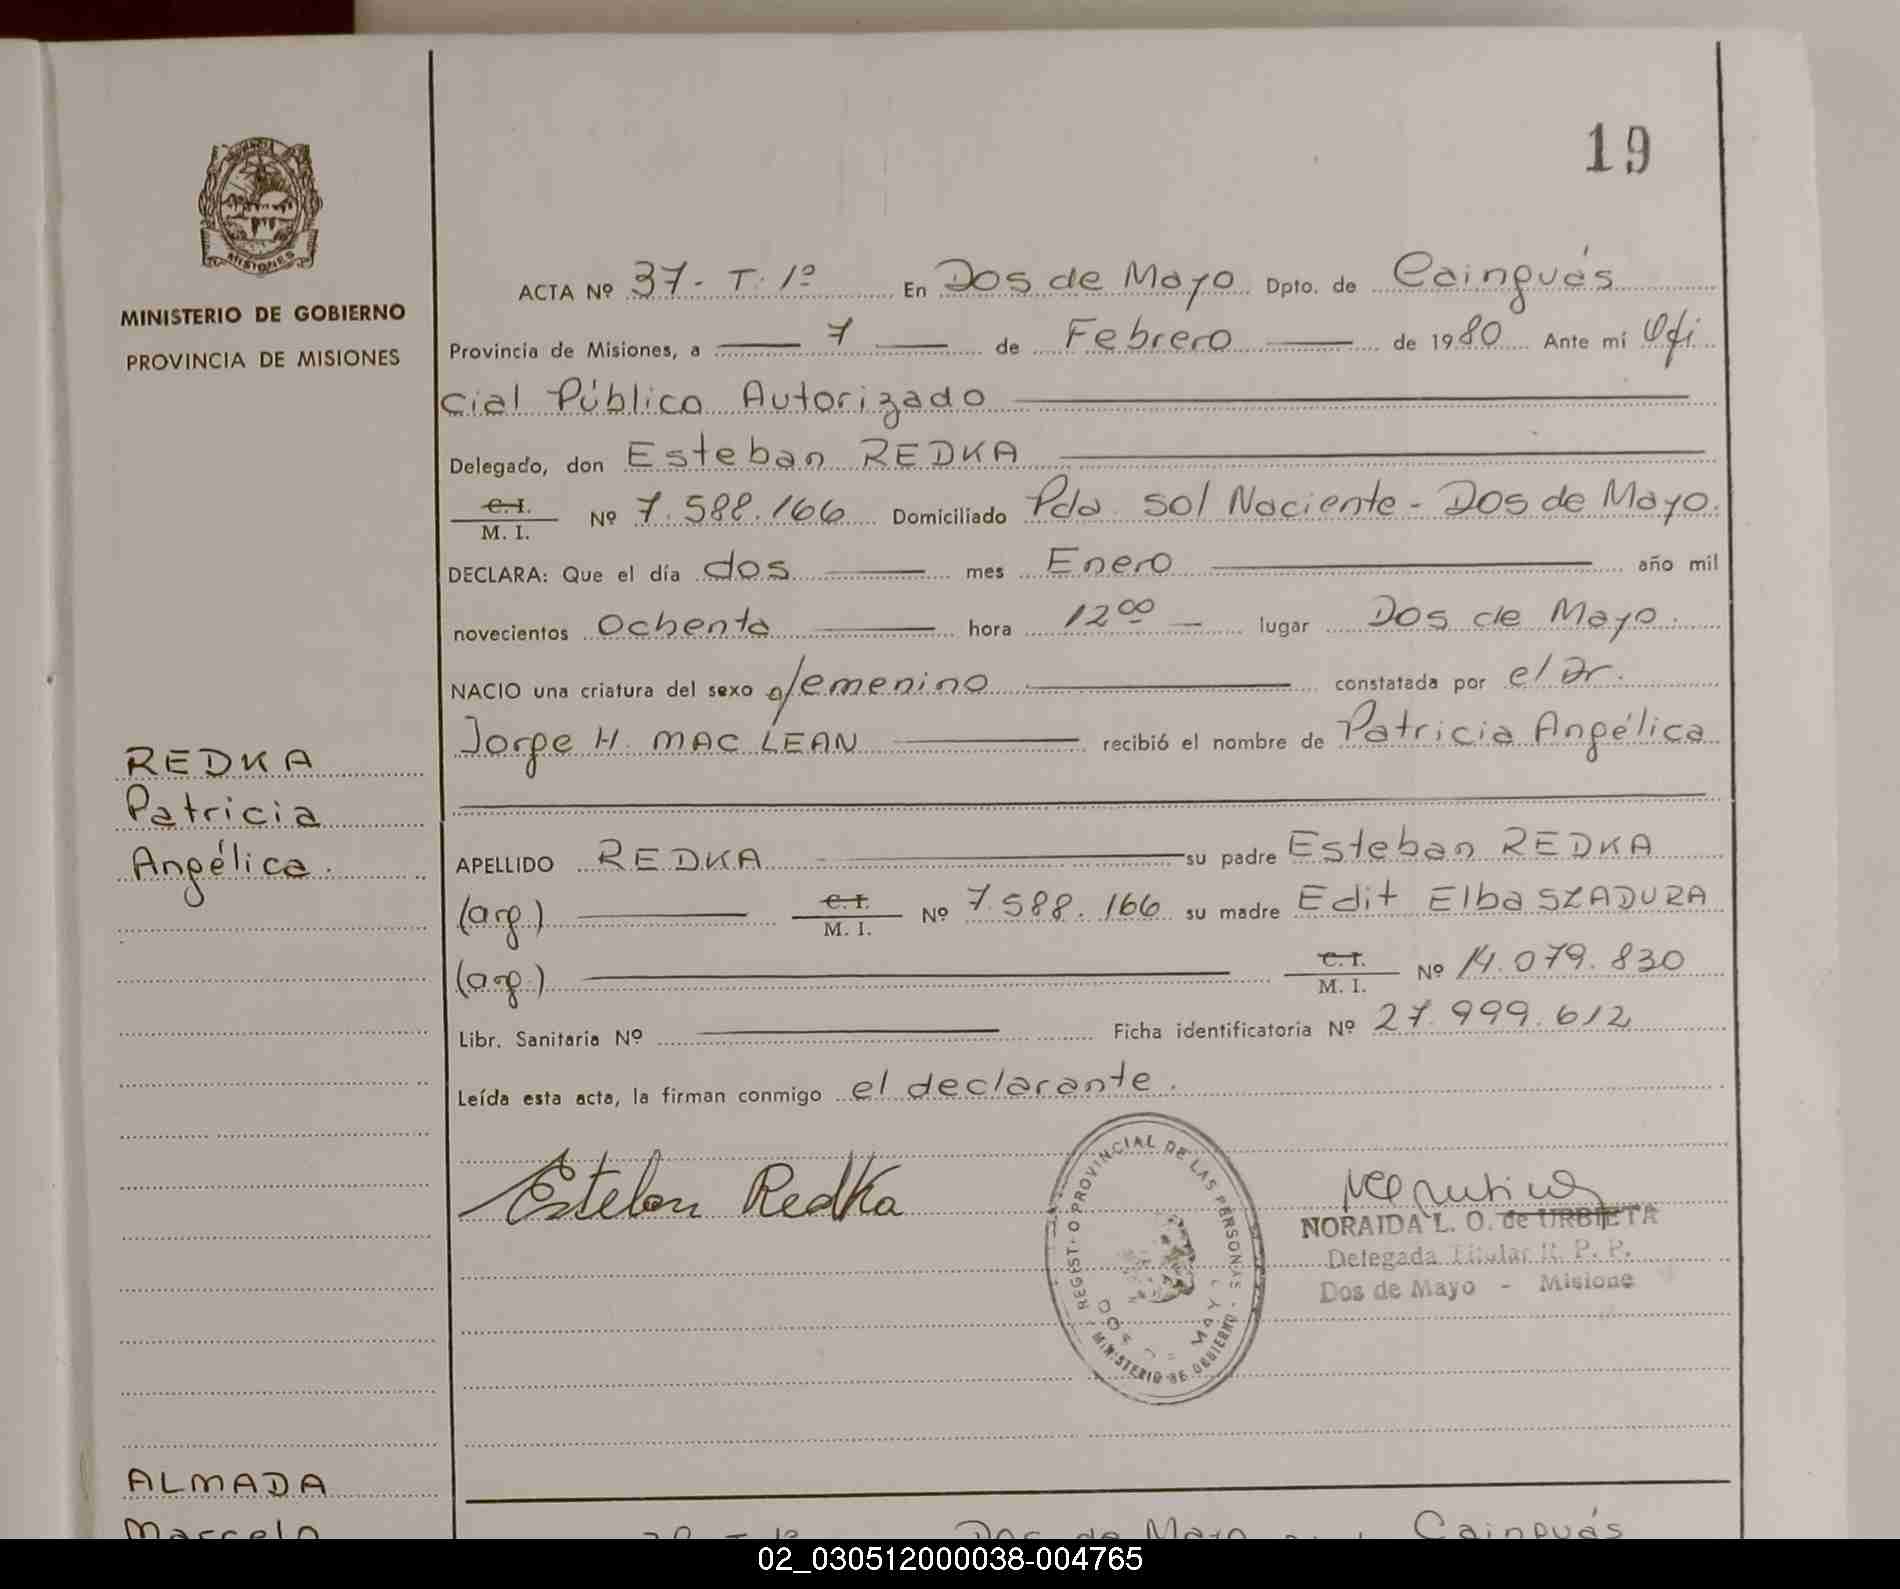 19
MISIONES
MINISTERIO DE GOBIERNO
PROVINCIA DE MISIONES
ACTA Nº 37- T. 1º En Dos de Mayo Dpto. de Cainguás
Provincia de Misiones, a 7 de Febrero de 1980 Ante mí Ofi
cial Público Autorizado
Delegado, don Esteban REDKA
C.I.
M. I. Nº 7.588.166 Domiciliado Pda. Sol Naciente - Dos de Mayo.
DECLARA: Que el día dos mes Enero año mil
novecientos Ochenta hora 12 00 lugar Dos de Mayo.
NACIO una criatura del sexo femenino constatada por el Dr.
Jorge H. MAC LEAN recibió el nombre de Patricia Angélica
REDKA
Patricia
Angélica.
APELLIDO REDKA su padre Esteban REDKA
(arg.) C.I.
M. I. Nº 7.588.166 su madre Edit Elba SZADURA
(arg.) C.I.
M. I. Nº 14.079.830
Libr. Sanitaria Nº Ficha identificatoria Nº 27.999.612
Leída esta acta, la firman conmigo el declarante.
Esteban Redka
REGIST O PROVINCIAL DE LAS PERSONAS
MINISTERIO DE GOBIERNO
NORAIDA L. O. de URBIETA
Delegada Titular R. P. P.
Dos de Mayo - Misione
ALMADA
Marcelo
Dos de Mayo Cainguás
02_030512000038-004765